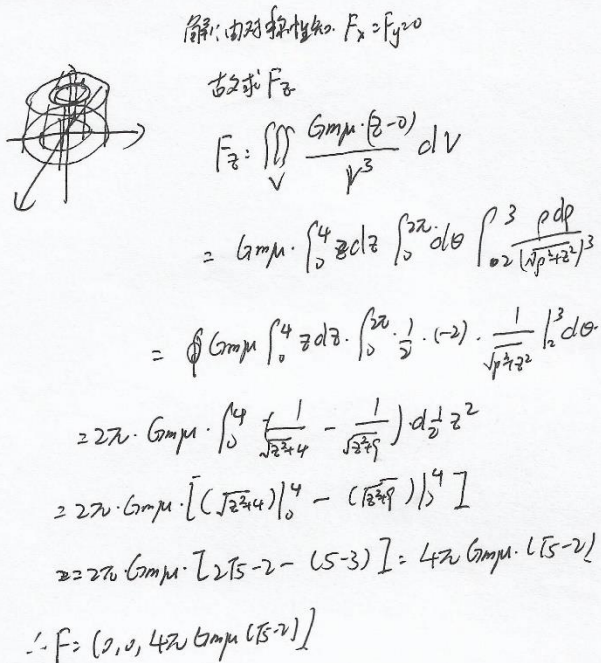 解:由对称性知. Fx=Fy=0
故求Fz
Fz: ∭_V Gmμ·(z-0)/r^3 dV
= Gmμ·∫_0^4 z dz ∫_0^{2π} dθ ∫_2^3 ρdρ/(√(ρ^2+z^2))^3
= Gmμ ∫_0^4 z dz·∫_0^{2π} 1/2·(-2)·1/√(ρ^2+z^2) |_2^3 dθ
=2π·Gmμ·∫_0^4 (1/√(z^2+4) - 1/√(z^2+9))·d 1/2 z^2
=2π·Gmμ·[(√(z^2+4))|_0^4 - (√(z^2+9))|_0^4]
=2π·Gmμ·[2√5-2-(5-3)]=4πGmμ·(√5-2)
∴F=(0,0,4πGmμ(√5-2)]